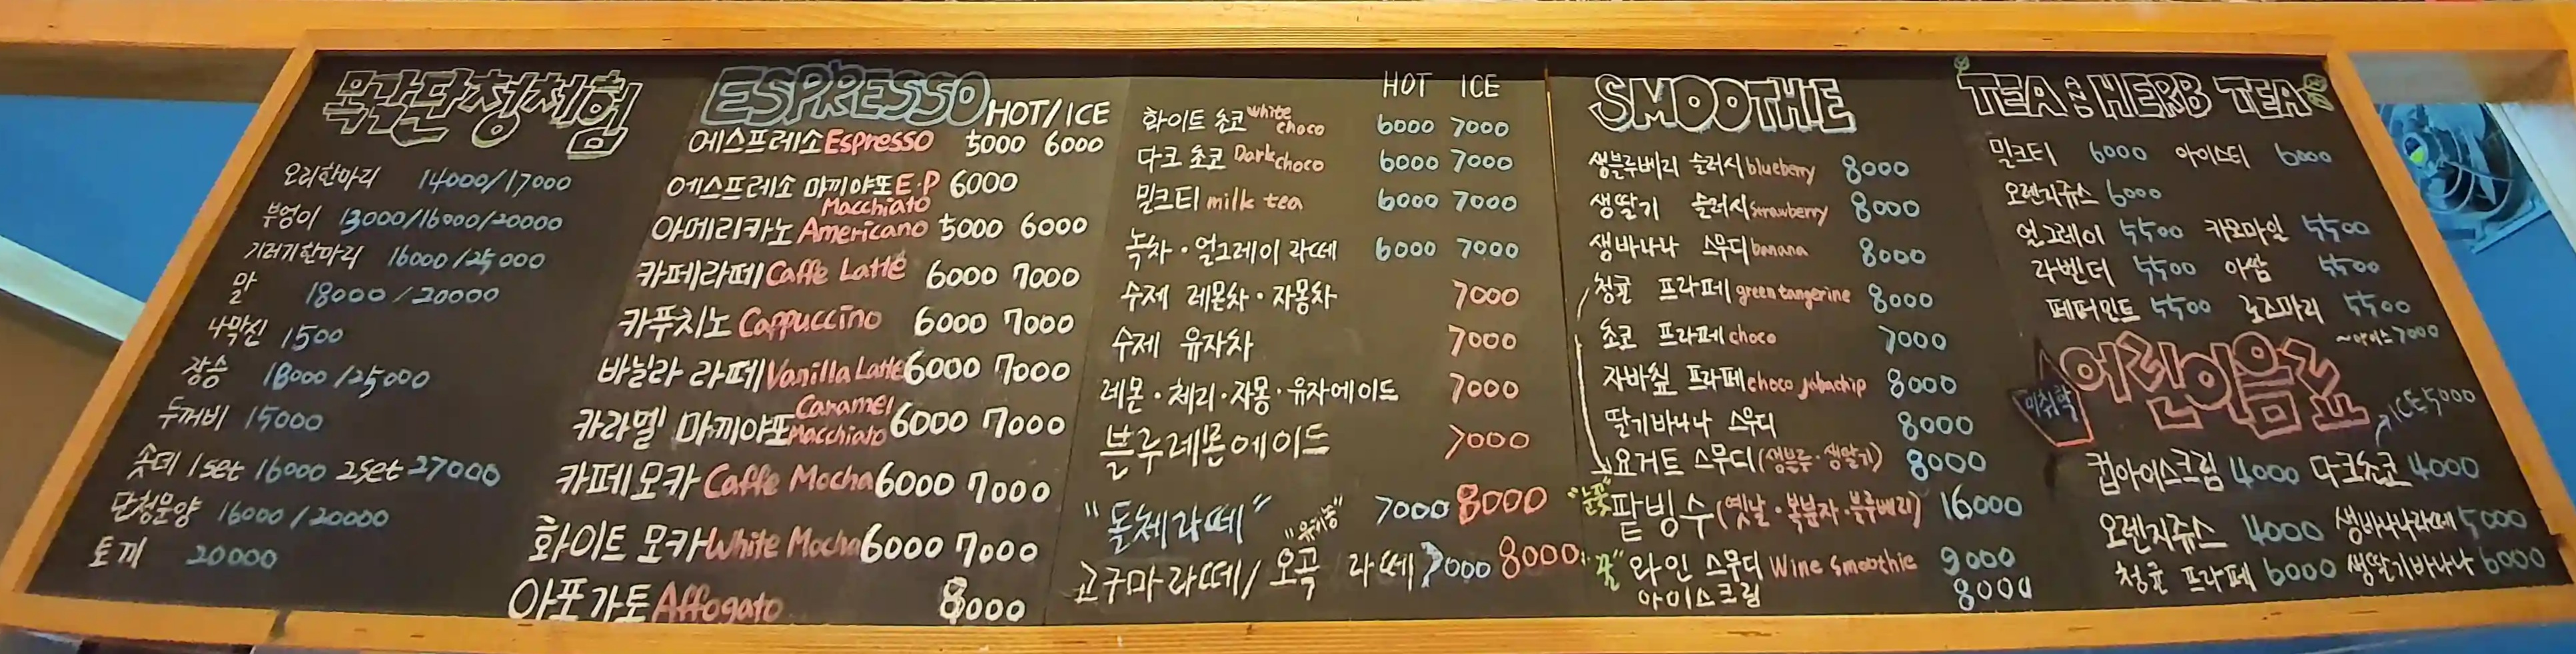 목각단청체험
오리한마리 14000/17000
부엉이 13000/16000/20000
기러기한마리 16000/25000
말 18000/20000
나막신 1500
장승 18000/25000
두꺼비 15000
솟대 1set 16000 2set 27000
단청문양 16000/20000
토끼 20000
ESPRESSO HOT/ICE
에스프레소 Espresso 5000 6000
에스프레소 마끼아또 E.P Macchiato 6000
아메리카노 Americano 5000 6000
카페라떼 Caffe Latte 6000 7000
카푸치노 Cappuccino 6000 7000
바닐라 라떼 Vanilla Latte 6000 7000
카라멜 마끼아또 Caramel Macchiato 6000 7000
카페모카 Caffe Mocha 6000 7000
화이트 모카 White Mocha 6000 7000
아포가토 Affogato 8000
HOT ICE
화이트 초코 white choco 6000 7000
다크 초코 Dark choco 6000 7000
밀크티 milk tea 6000 7000
녹차·얼그레이 라떼 6000 7000
수제 레몬차·자몽차 7000
수제 유자차 7000
레몬·체리·자몽·유자에이드 7000
블루레몬에이드 7000
"돌체라떼" 7000 8000
"유기농"
고구마라떼/오곡 라떼 7000 8000
SMOOTHIE
생블루베리 슬러시 blueberry 8000
생딸기 슬러시 strawberry 8000
생바나나 스무디 banana 8000
청귤 프라페 green tangerine 8000
초코 프라페 choco 7000
자바칲 프라페 choco jabachip 8000
딸기바나나 스무디 8000
요거트 스무디(생블루·생딸기) 8000
"눈꽃" 팥빙수(옛날·복분자·블루베리) 16000
와인 스무디 Wine Smoothie 9000
아이스크림 8000
TEA & HERB TEA
밀크티 6000 아이스티 6000
오렌지쥬스 6000
얼그레이 5500 카모마일 5500
라벤더 5500 아쌈 5500
페퍼민트 5500 로즈마리 5500
~아이스 7000
미취학 어린이음료
ICE 5000
컵아이스크림 4000 다크초코 4000
오렌지쥬스 4000 생바나나라떼 5000
청귤 프라페 6000 생딸기바나나 6000